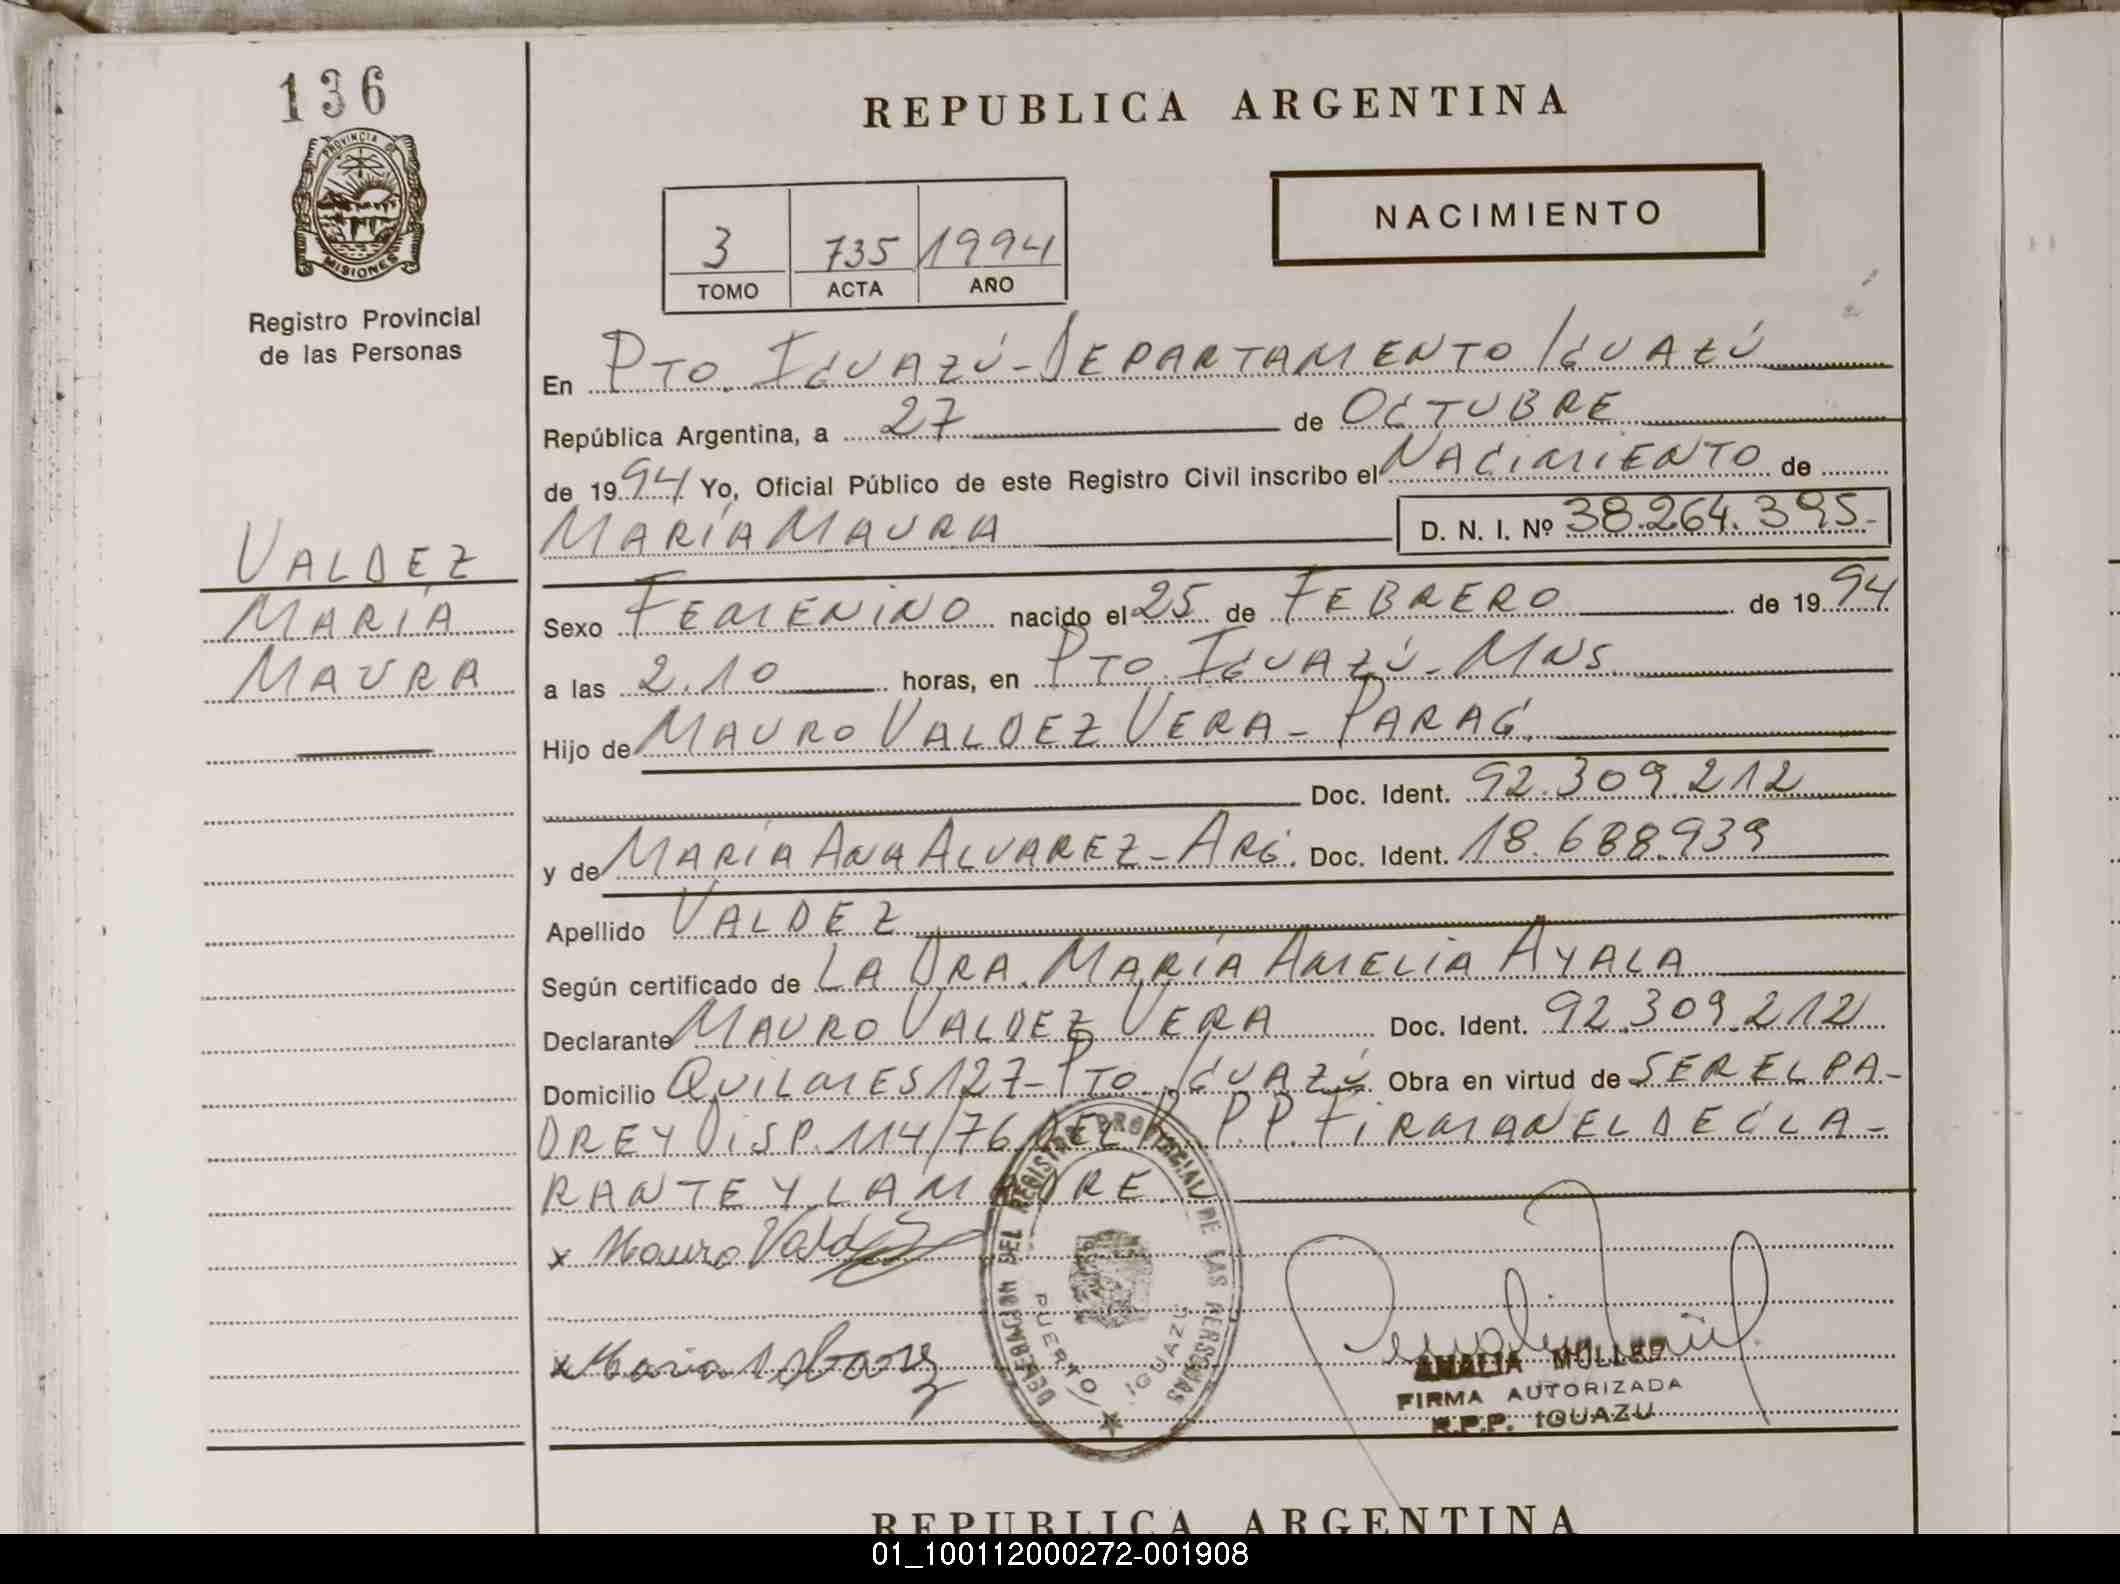 136
PROVINCIA DE
MISIONES
Registro Provincial
de las Personas
VALDEZ
MARÍA
MAURA
REPUBLICA ARGENTINA
NACIMIENTO
3 735 1994
TOMO ACTA AÑO
En PTO. IGUAZÚ - DEPARTAMENTO IGUAZÚ
República Argentina, a 27 de OCTUBRE
de 1994 Yo, Oficial Público de este Registro Civil inscribo el NACIMIENTO de
MARÍA MAURA D. N. I. Nº 38.264.395.-
Sexo FEMENINO nacido el 25 de FEBRERO de 1994
a las 2.10 horas, en PTO. IGUAZÚ - MNS.
Hijo de MAURO VALDEZ VERA - PARAG.
Doc. Ident. 92.309.212
y de MARÍA ANA ALVAREZ - ARG. Doc. Ident. 18.688.939
Apellido VALDEZ
Según certificado de LA DRA. MARÍA AMELIA AYALA
Declarante MAURO VALDEZ VERA Doc. Ident. 92.309.212
Domicilio QUILMES 127 - PTO. IGUAZÚ Obra en virtud de SER EL PA-
DRE Y DISP. 114/76 DEL R.P.P. FIRMAN EL DECLA-
RANTE Y LA MADRE.
x Mauro Valdez
x Maria Alvarez
DELEGACION DEL REGISTRO PROVINCIAL DE LAS PERSONAS
PUERTO IGUAZU
AMALIA MULLER
FIRMA AUTORIZADA
R.P.P. IGUAZU
REPUBLICA ARGENTINA
01_100112000272-001908